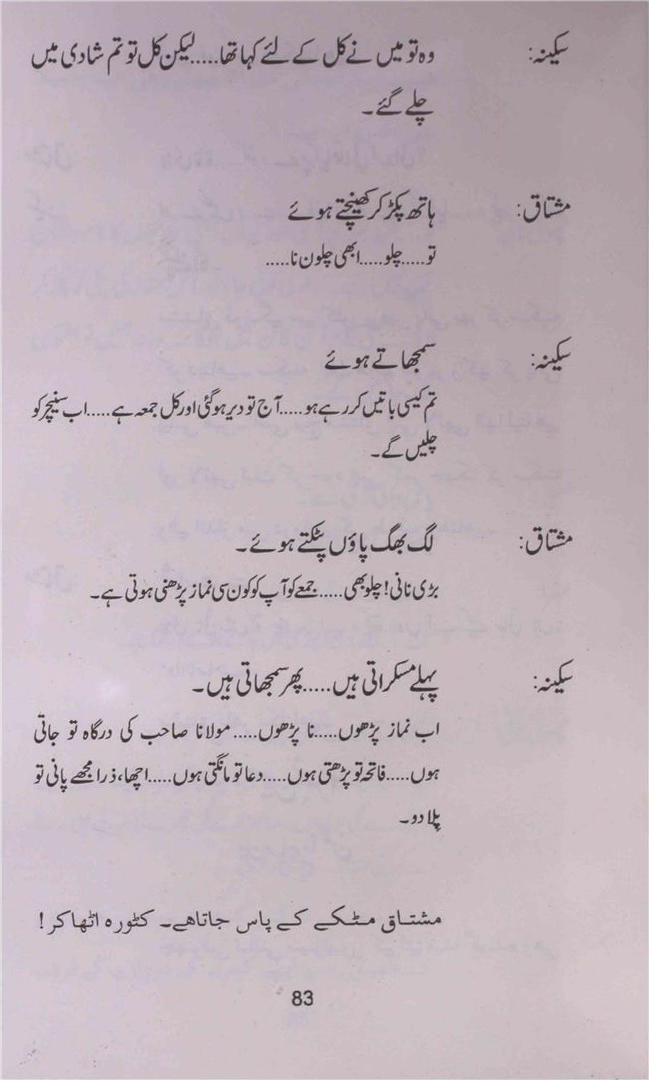 سکینہ: وہ تو میں نے کل کے لئے کہا تھا.....لیکن کل تو تم شادی میں
چلے گئے۔
مشتاق: ہاتھ پکڑ کر کھینچتے ہوئے
تو.....چلو.....ابھی چلون نا.....
سکینہ: سمجھاتے ہوئے
تم کیسی باتیں کر رہے ہو.....آج تو دیر ہوگئی اور کل جمعہ ہے.....اب سنیچر کو
چلیں گے۔
مشتاق: لگ بھگ پاؤں پٹکتے ہوئے۔
بڑی نانی! چلو بھی.....جمعے کو آپ کو کون سی نماز پڑھنی ہوتی ہے۔
سکینہ: پہلے مسکراتی ہیں.....پھر سمجھاتی ہیں۔
اب نماز پڑھوں.....نا پڑھوں.....مولانا صاحب کی درگاہ تو جاتی
ہوں.....فاتحہ تو پڑھتی ہوں.....دعا تو مانگتی ہوں.....اچھا، ذرا مجھے پانی تو
پلا دو۔
مشتاق مٹکے کے پاس جاتاھے۔ کٹورہ اٹھا کر!
83